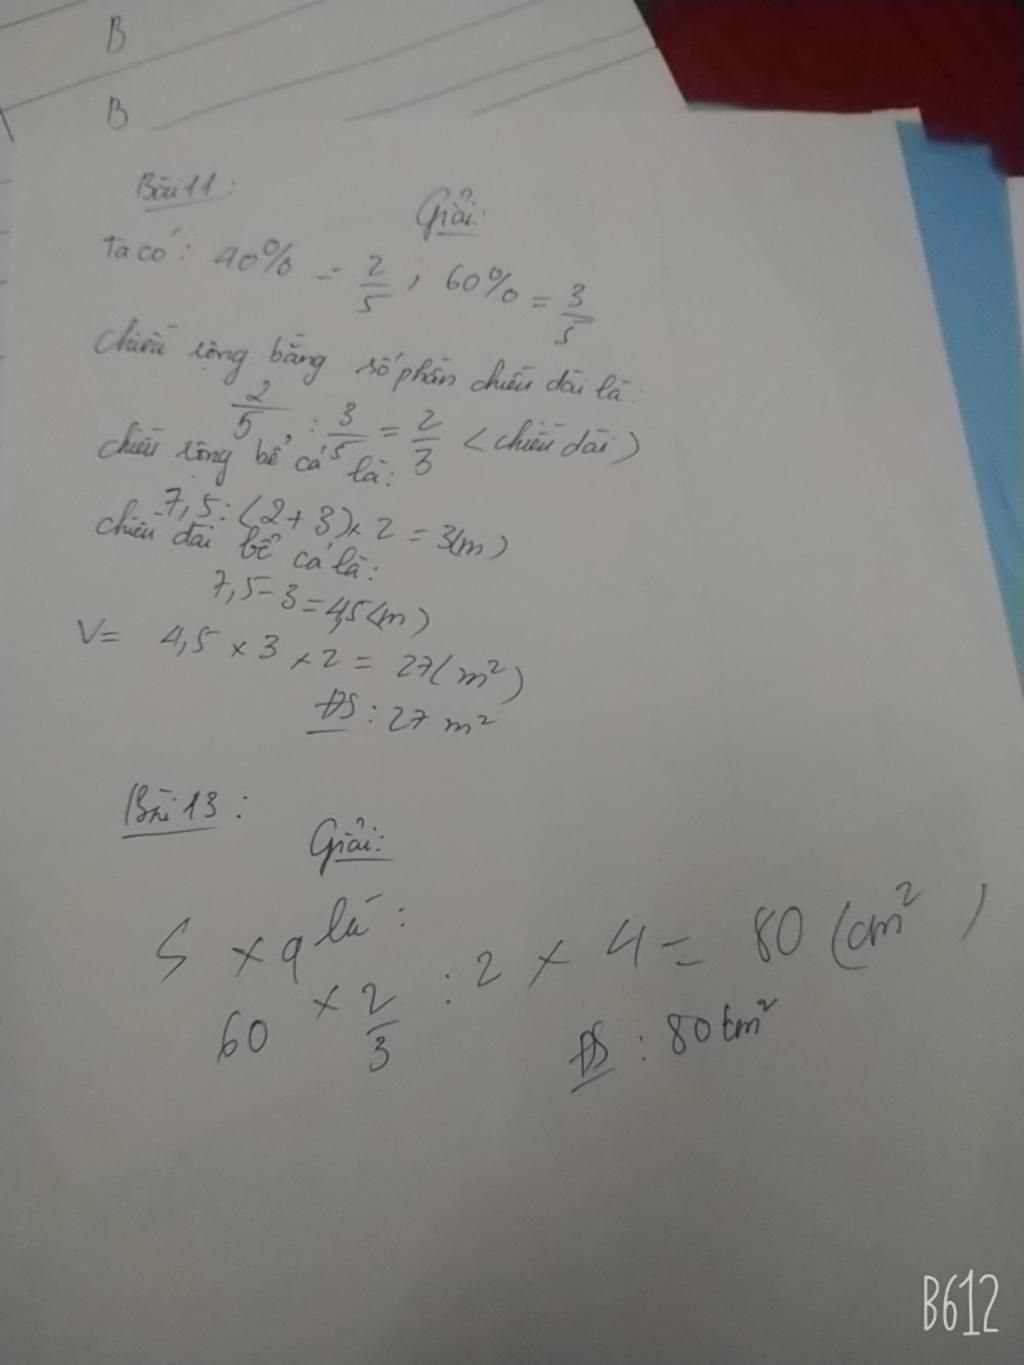 B
B
Bài 11:
Giải:
Ta có: 40% = 2/5 ; 60% = 3/5
Chiều rộng bằng số phần chiều dài là:
2/5 : 3/5 = 2/3 (chiều dài)
chiều rộng bể cá là:
7,5 : (2+3) x 2 = 3(m)
chiều dài bể cá là:
7,5 - 3 = 4,5 (m)
V = 4,5 x 3 x 2 = 27 (m²)
ĐS : 27 m²
Bài 13 :
Giải:
S xq là :
60 x 2/3 : 2 x 4 = 80 (cm²)
ĐS : 80 cm²
B612